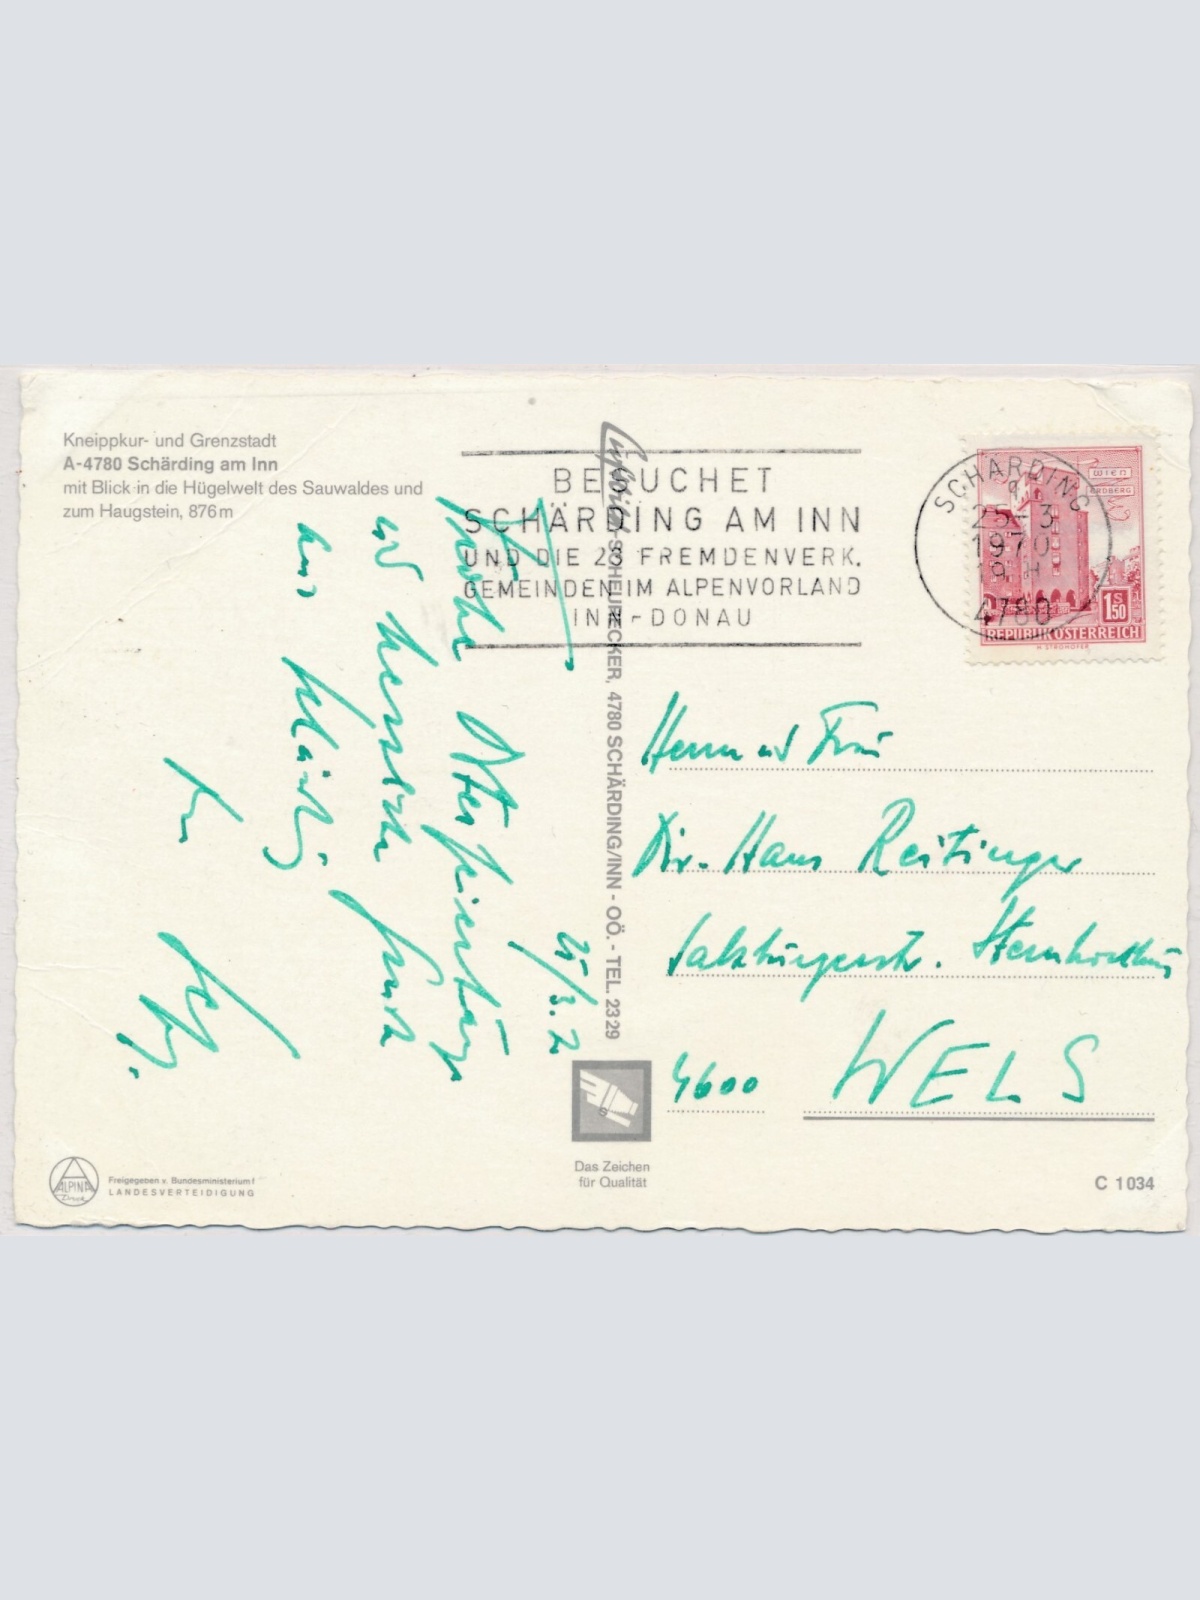 Kneippkur- und Grenzstadt
A-4780 Schärding am Inn
mit Blick in die Hügelwelt des Sauwaldes und
zum Haugstein, 876m
BESUCHET
SCHÄRDING AM INN
UND DIE 28 FREMDENVERK.
GEMEINDEN IM ALPENVORLAND
INN-DONAU
SCHÄRDING
25-3
1970
19
4780
WIEN
ERDBERG
1 S 50
REPUBLIK ÖSTERREICH
H. STROHOFER
SCHEURECKER, 4780 SCHÄRDING/INN - OÖ. - TEL. 2329
25/3.
Frohe Osterfeiertage
und herzliche Grüße
aus Schärding
Herrn und Frau
Dir. Hans Reitinger
Salzburgerstr.
4600 WELS
Das Zeichen
für Qualität
ALPINA
Druck
Freigegeben v. Bundesministerium f
LANDESVERTEIDIGUNG
C 1034